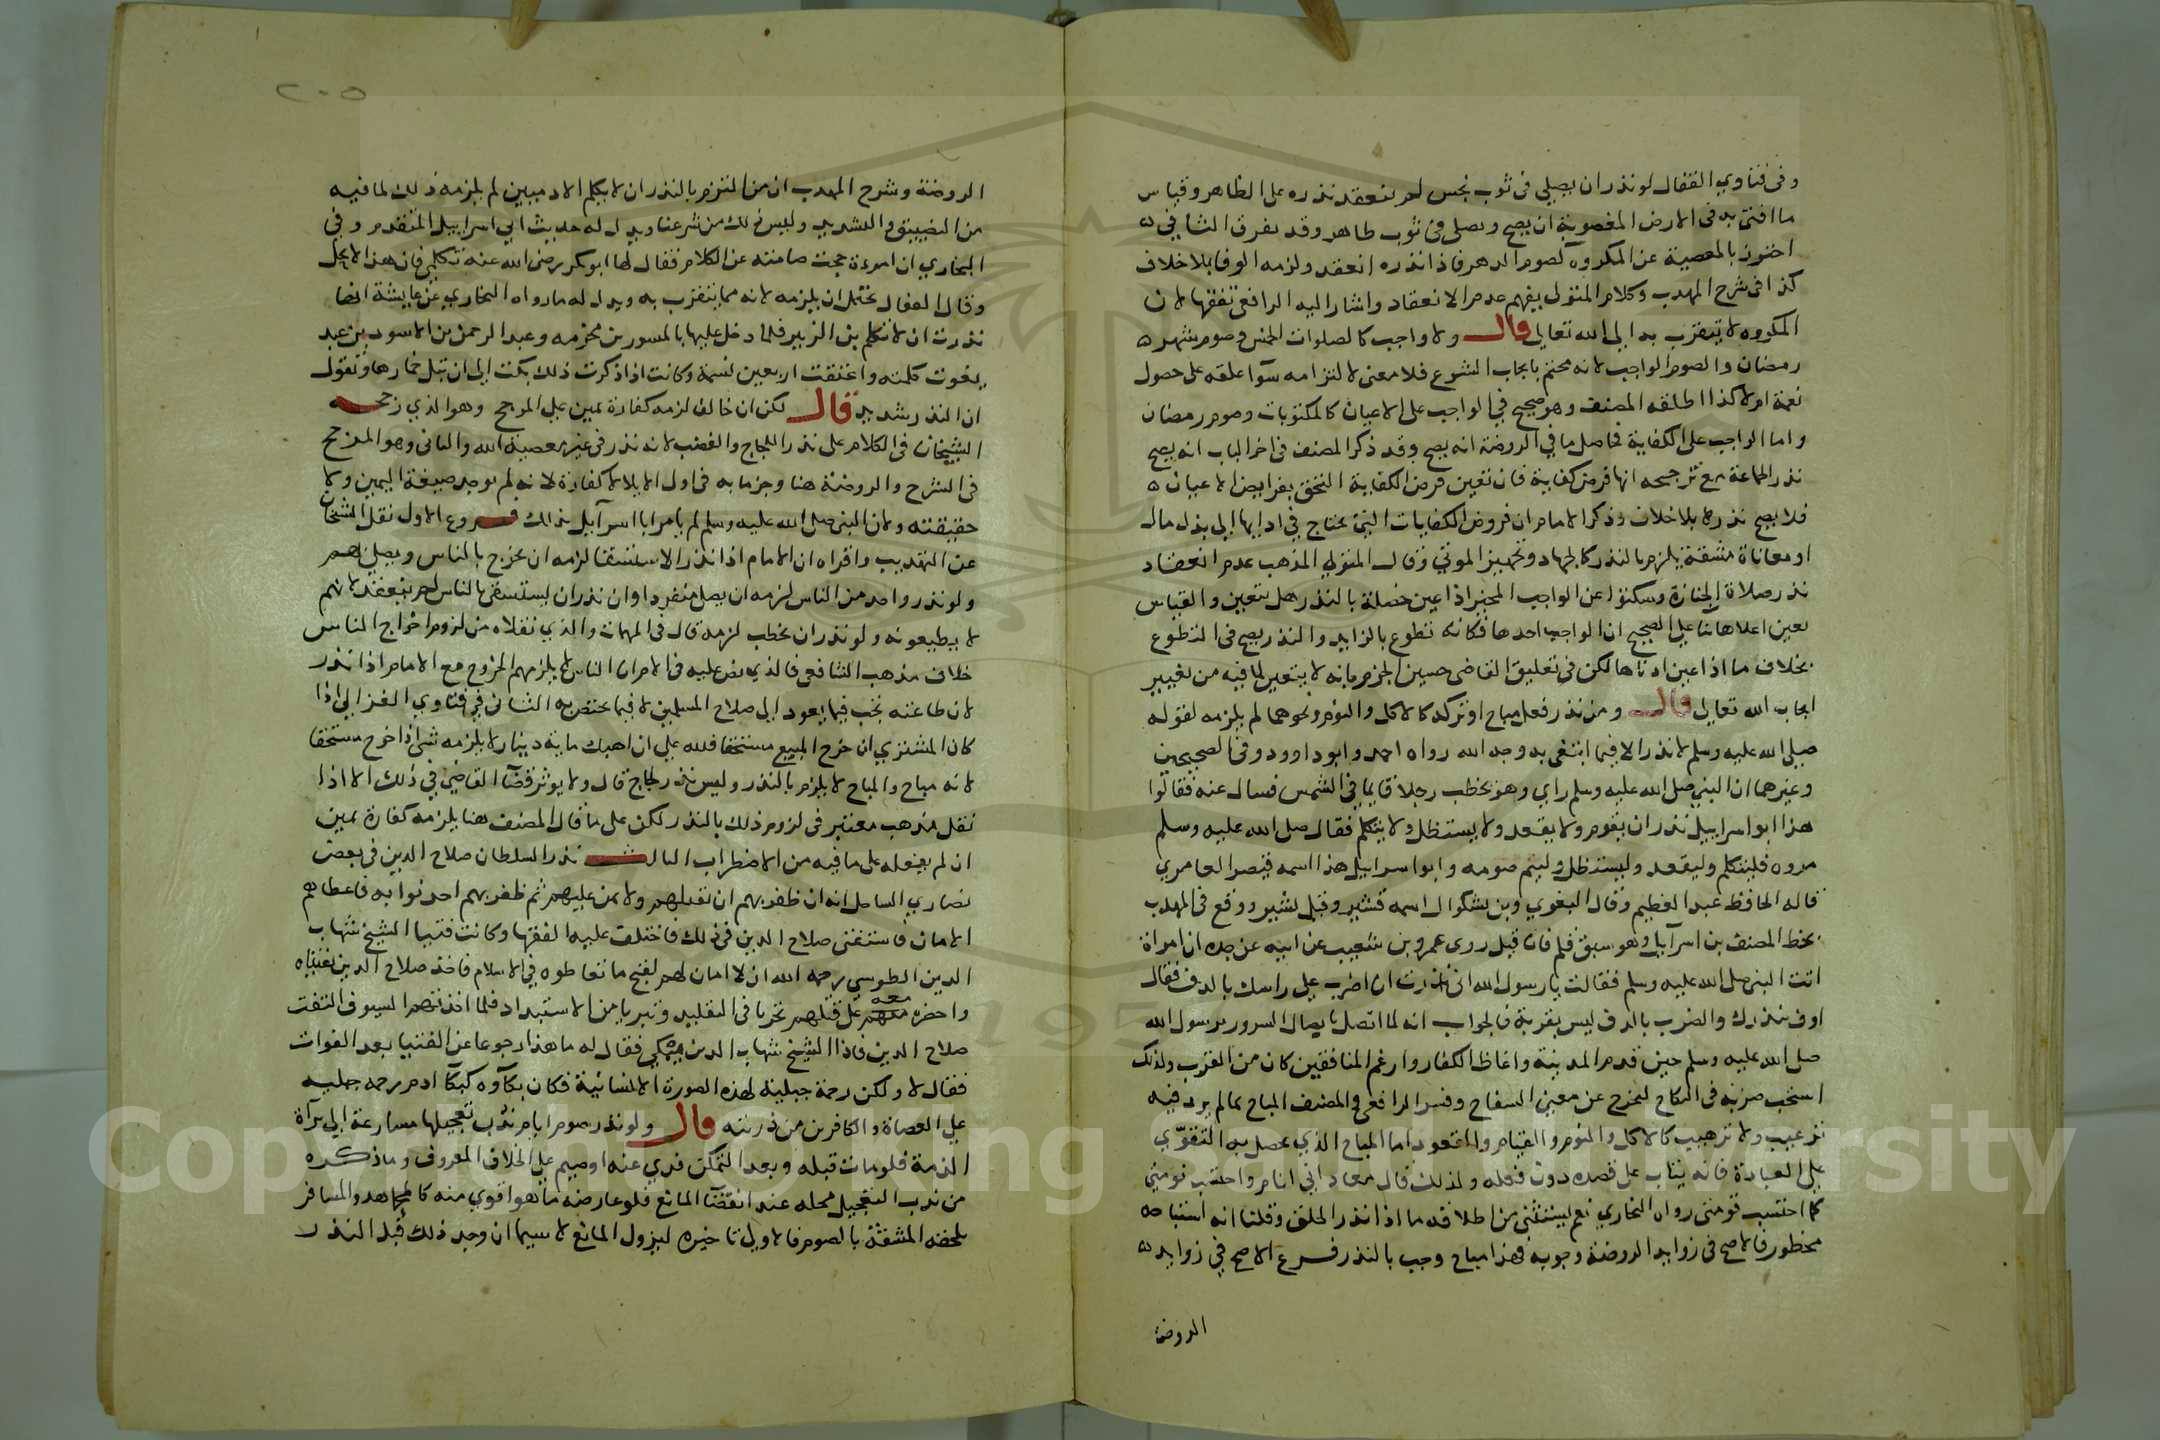 وفى فتاوي القفال لو نذر ان يصلي فى ثوب نجس لم ينعقد نذره على الظاهر وقياس
ما افتى به فى الارض المغصوبة ان يصح ويصلى فى ثوب طاهر وقد يفرق الثاني
احترز بالمعصية عن المكروه كصوم الدهر فاذا نذره انعقد ولزمه الوفا بلا خلاف
كذا فى شرح المهذب وكلام المتولى يفهم عدم الانعقاد واشار اليه الرافعى تفقها لان
المكروه لا يتقرب به الى الله تعالى قال ولا واجب كالصلوات الخمس وصوم شهر
رمضان والصوم الواجب لانه محتم بايجاب الشرع فلا معنى لالتزامه سوآ علقه على حصول
نعمة ام لا كذا اطلقه المصنف وهو صحيح فى الواجب على الاعيان كالمكتوبات وصوم رمضان
واما الواجب على الكفاية فحاصل ما في الروضة انه يصح وقد ذكر المصنف فى اخر الباب انه يصح
نذر الجماعة مع ترجيحه انها فرض كفاية فان تعين فرض الكفاية التحق بفرايض الاعيان
فلا يصح نذرها بلا خلاف وذكر الامام ان فروض الكفايات التى يحتاج في ادايها الى بذل مال
او معاناة مشقة يلزم بالنذر كالجهاد وتجهيز الموتي وقال المتولي المذهب عدم انعقاد
نذر صلاة الجنازة وسكتوا عن الواجب المخير اذا عين خصلة بالنذر هل يتعين والقياس
تعين اعلاها بنا على الصحيح ان الواجب احدها فكانه تطوع بالزايد والنذر يصح فى التطوع
بخلاف ما اذا عين ادناها لكن في تعليق القاضى حسين الجزم بانه لا يتعين لما فيه من تغيير
ايجاب الله تعالى قال ومن نذر فعل مباح او تركه كالاكل والنوم ونحوهما لم يلزمه لقوله
صلى الله عليه وسلم لا نذر الا فيما ابتغى به وجه الله رواه احمد وابو داوود وفى الصحيحين
وغيرهما ان النبي صلى الله عليه وسلم راي وهو يخطب رجلا قايما في الشمس فسال عنه فقالوا
هذا ابو اسراييل نذر ان يقوم ولا يقعد ولا يستظل ولا يتكلم فقال صلى الله عليه وسلم
مروه فليتكلم وليقعد وليستظل وليتم صومه وابو اسراييل هذا اسمه قيصر العامري
قاله الحافظ عبد العظيم وقال البغوي وبن بشكوال اسمه قشير وقيل بشير ووقع فى المهذب
بخط المصنف بن اسرآيل وهو سبق قلم فان قيل روى عمرو بن شعيب عن ابيه عن جده ان امراة
اتت النبي صلى الله عليه وسلم فقالت يا رسول الله انى نذرت ان اضرب على راسك بالدف فقال
اوفى بنذرك والضرب بالدف ليس بقربة فالجواب انه لما اتصل بايصال السرور برسول الله
صلى الله عليه وسلم حين قدم المدينة واغاظ الكفار وارغم المنافقين كان من القرب ولذلك
استحب ضربه فى النكاح ليخرج عن معنى السفاح وفسر الرافعى والمصنف المباح بما لم يرد فيه
ترغيب ولا ترهيب كالاكل والنوم والقيام والقعود اما المباح الذي يحصل به التقوّي
على العبادة فانه يثاب على قصده دون فعله ولذلك قال معاد انى انام واحتسب نومتي
كما احتسب قومتى رواه البخاري نعم يستثنى من اطلاقه ما اذا نذر الحلق وقلنا انه استباحة
محظور فالاصح فى زوايد الروضة وجوبه فهذا مباح وجب بالنذر فرع الاصح في زوايد
الروضة
٢٠٥
الروضة وشرح المهذب ان من التزم بالنذر ان لا يكلم الادميين لم يلزمه ذلك لما فيه
من التضييق والتشديد وليس ذلك من شرعنا ويدل له حديث ابي اسراييل المتقدم وفى
البخاري ان امرءة حجت صامتة عن الكلام فقال لها ابو بكر رضى الله عنه تكلمي فان هذا لا يحل
وقال القفال يحتمل ان يلزمه لانه مما يتقرب به ويدل له ما رواه البخاري عن عايشة انها
نذرت ان لا تكلم بن الزبير فلما دخل عليها بالمسور بن مخرمه وعبد الرحمن بن الاسود بن عبد
يغوث كلمته واعتقت اربعين نسمة وكانت اذا ذكرت ذلك بكت الى ان تبل خمارها وتقول
ان النذر شديد قال لكن ان خالف لزمه كفارة يمين على المرجح وهو الذي رجحه
الشيخان فى الكلام على نذر اللجاج والغضب لانه نذر فى غير معصية الله والثانى وهو المرجح
فى الشرح والروضة هنا وجزما به فى اول الايلا لا كفارة لانه لم يوجد صيغة اليمين ولا
حقيقته ولان النبى صلى الله عليه وسلم لم يامر ابا اسرآيل بذلك فروع الاول نقل الشيخان
عن التهذيب واقراه ان الامام اذا نذر الاستسقا لزمه ان يخرج بالناس ويصلى بهم
ولو نذر واحد من الناس لزمه ان يصلى منفردا وان نذر ان يستسقى بالناس لم ينعقد لانهم
لا يطيعونه ولو نذر ان يخطب لزمه قال فى المهمات والذي نقلاه من لزوم اخراج الناس
خلاف مذهب الشافعى فالذي نص عليه فى الام ان الناس لا يلزمهم الخروج مع الامام اذا نذر
لان طاعته تجب فيما يعود الى صلاح المسلمين لا فيما يختص به الثانى في فتاوي الغزالي اذا
كان المشترى ان خرج المبيع مستحقا فلله علي ان اهبك ماية دينار لا يلزمه شئ اذا خرج مستحقا
لانه مباح والمباح لا يلزم بالنذر وليس نذر لجاج قال ولا يوثر قضآ القاضي في ذلك الا اذا
نقل مذهب معتبر فى لزوم ذلك بالنذر لكن على ما قال المصنف هنا يلزمه كفارة يمين
ان لم يفعله على ما فيه من الاضطراب الثالث نذر السلطان صلاح الدين فى بعض
نصارى الساحل انه ان ظفر بهم ان يقتلهم ولا يمن عليهم ثم ظفر بهم احدثوا به فاعطاهم
الامان فاستفتى صلاح الدين فى ذلك فاختلف عليه الفقها وكانت فتيا الشيخ شهاب
الدين الطوسي رحمه الله ان لا امان لهم لقبح ما تعاطوه في الاسلام فاخذ صلاح الدين بفتياه
واحضره معه على قتلهم تحريا فى التقليد وتبريا من الاستبداد فلما اخذتهم السيوف التفت
صلاح الدين فاذا الشيخ شهاب الدين يبكي فقال له ما هذا رجوعا عن الفتيا بعد الفوات
فقال لا ولكن رحمة جبلية لهذه الصورة الانسانية فكان بكآوه كبكآ ادم رحمة جبلية
على العصاة والكافرين من ذريته قال ولو نذر صوم ايام ندب تعجيلها مسارعة الي برآة
الذمة فلو مات قبله وبعد التمكن فدي عنه او صيم على الخلاف المعروف وما ذكره
من ندب التعجيل محله عند انتفآ المانع فلو عارضه ما هو اقوي منه كالمجاهد والمسافر
يلحقه المشقة بالصوم فالاولى تاخيره ليزول المانع لا سيما ان وجد ذلك قبل النذر
Copyright © King Saud University